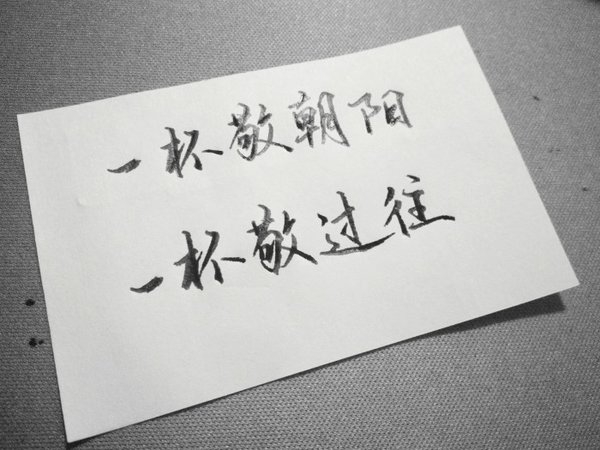 一杯敬朝阳
一杯敬过往